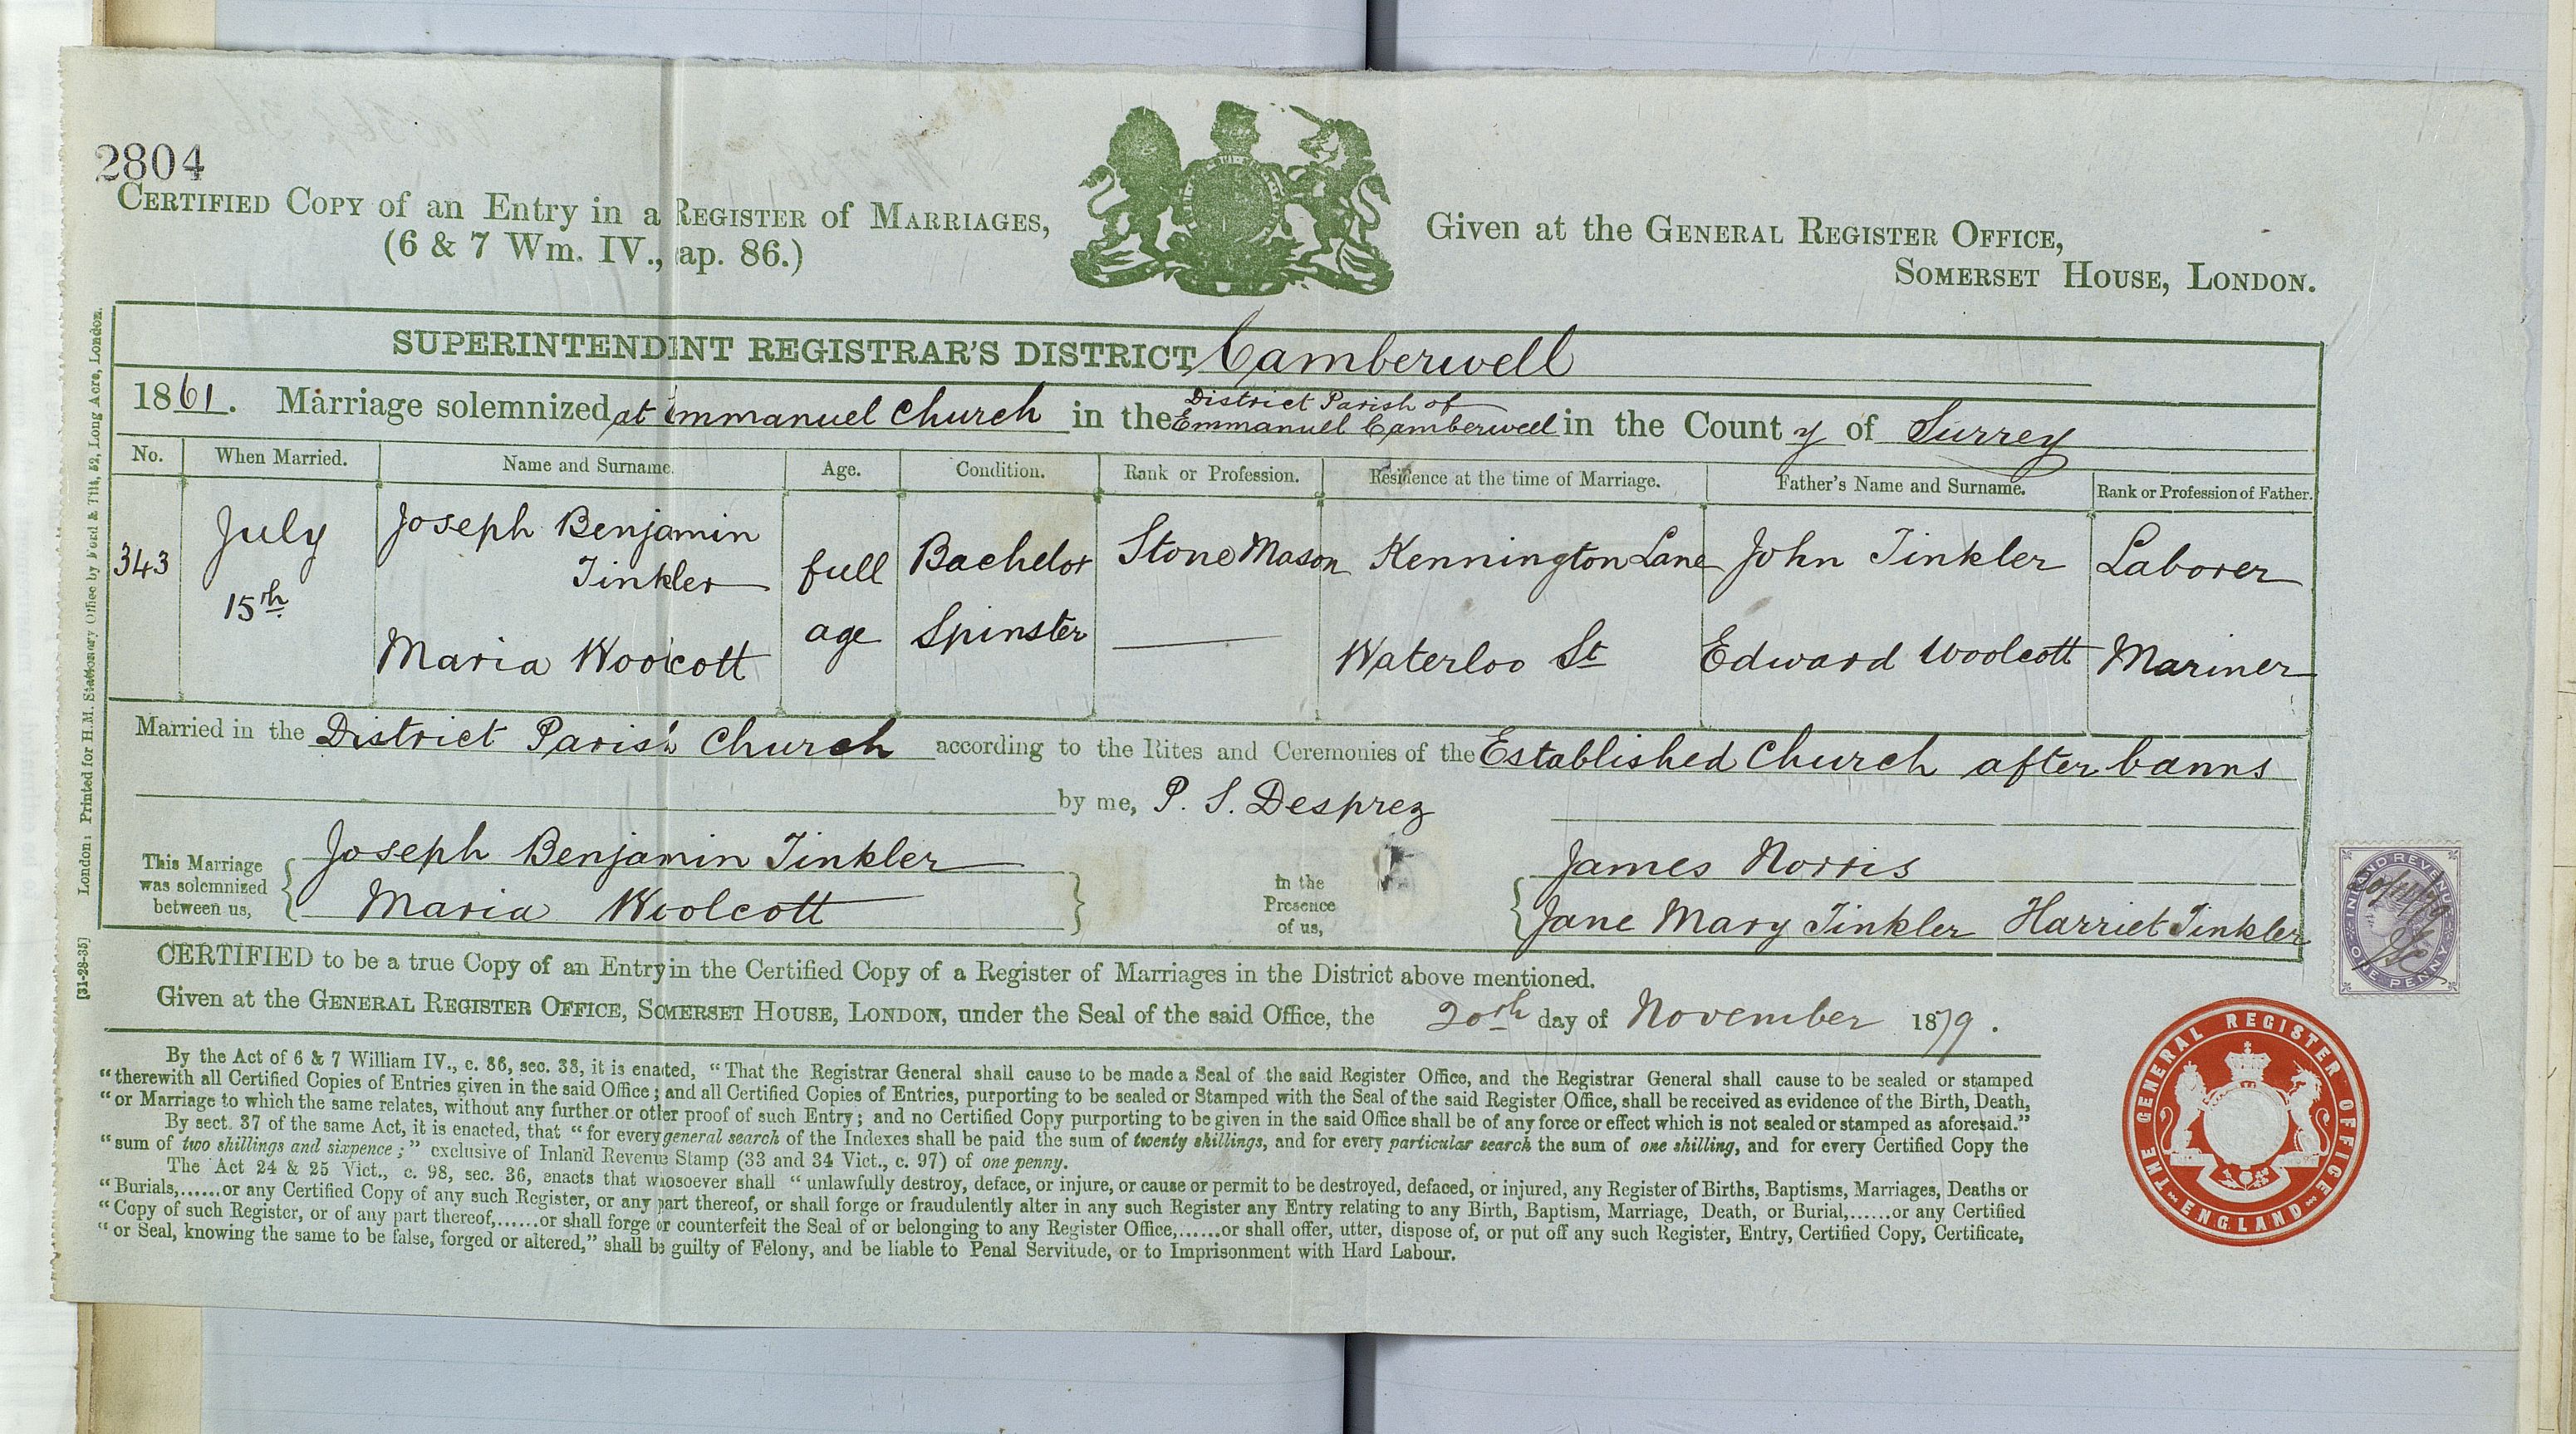 2804
CERTIFIED COPY of an Entry in a REGISTER of MARRIAGES,
(6 & 7 Wm. IV., ap. 86.)
Given at the GENERAL REGISTER OFFICE,
SOMERSET HOUSE, LONDON.
SUPERINTENDENT REGISTRAR'S DISTRICT Camberwell
1861. Marriage solemnized at Emmanuel Church in the District Parish of Emmanuel Camberwell in the County of Surrey
No. When Married. Name and Surname. Age. Condition. Rank or Profession. Residence at the time of Marriage. Father's Name and Surname. Rank or Profession of Father.
343 July 15th Joseph Benjamin Tinkler full Bachelor Stone Mason Kennington Lane John Tinkler Laborer
Maria Woolcott age Spinster — Waterloo St Edward Woolcott Mariner
Married in the District Parish Church according to the Rites and Ceremonies of the Established Church after banns
by me, P. S. Desprez
This Marriage was solemnized between us,
Joseph Benjamin Tinkler
Maria Woolcott
In the Presence of us,
James Norris
Jane Mary Tinkler Harriet Tinkler
CERTIFIED to be a true Copy of an Entry in the Certified Copy of a Register of Marriages in the District above mentioned.
Given at the GENERAL REGISTER OFFICE, SOMERSET HOUSE, LONDON, under the Seal of the said Office, the 20th day of November 1879.
By the Act of 6 & 7 William IV., c. 86, sec. 38, it is enacted, "That the Registrar General shall cause to be made a Seal of the said Register Office, and the Registrar General shall cause to be sealed or stamped
"therewith all Certified Copies of Entries given in the said Office; and all Certified Copies of Entries, purporting to be sealed or Stamped with the Seal of the said Register Office, shall be received as evidence of the Birth, Death,
"or Marriage to which the same relates, without any further or other proof of such Entry; and no Certified Copy purporting to be given in the said Office shall be of any force or effect which is not sealed or stamped as aforesaid."
By sect. 37 of the same Act, it is enacted, that "for every general search of the Indexes shall be paid the sum of twenty shillings, and for every particular search the sum of one shilling, and for every Certified Copy the
"sum of two shillings and sixpence;" exclusive of Inland Revenue Stamp (33 and 34 Vict., c. 97) of one penny.
The Act 24 & 25 Vict., c. 98, sec. 36, enacts that whosoever shall "unlawfully destroy, deface, or injure, or cause or permit to be destroyed, defaced, or injured, any Register of Births, Baptisms, Marriages, Deaths or
"Burials,......or any Certified Copy of any such Register, or any part thereof, or shall forge or fraudulently alter in any such Register any Entry relating to any Birth, Baptism, Marriage, Death, or Burial,......or any Certified
"Copy of such Register, or of any part thereof,......or shall forge or counterfeit the Seal of or belonging to any Register Office,......or shall offer, utter, dispose of, or put off any such Register, Entry, Certified Copy, Certificate,
"or Seal, knowing the same to be false, forged or altered," shall be guilty of Felony, and be liable to Penal Servitude, or to Imprisonment with Hard Labour.
[31-28-35] London: Printed for H.M. Stationery Office by Ford & Tilt, 52, Long Acre, London.
INLAND REVENUE
ONE PENNY
20/11/79
THE GENERAL REGISTER OFFICE
ENGLAND